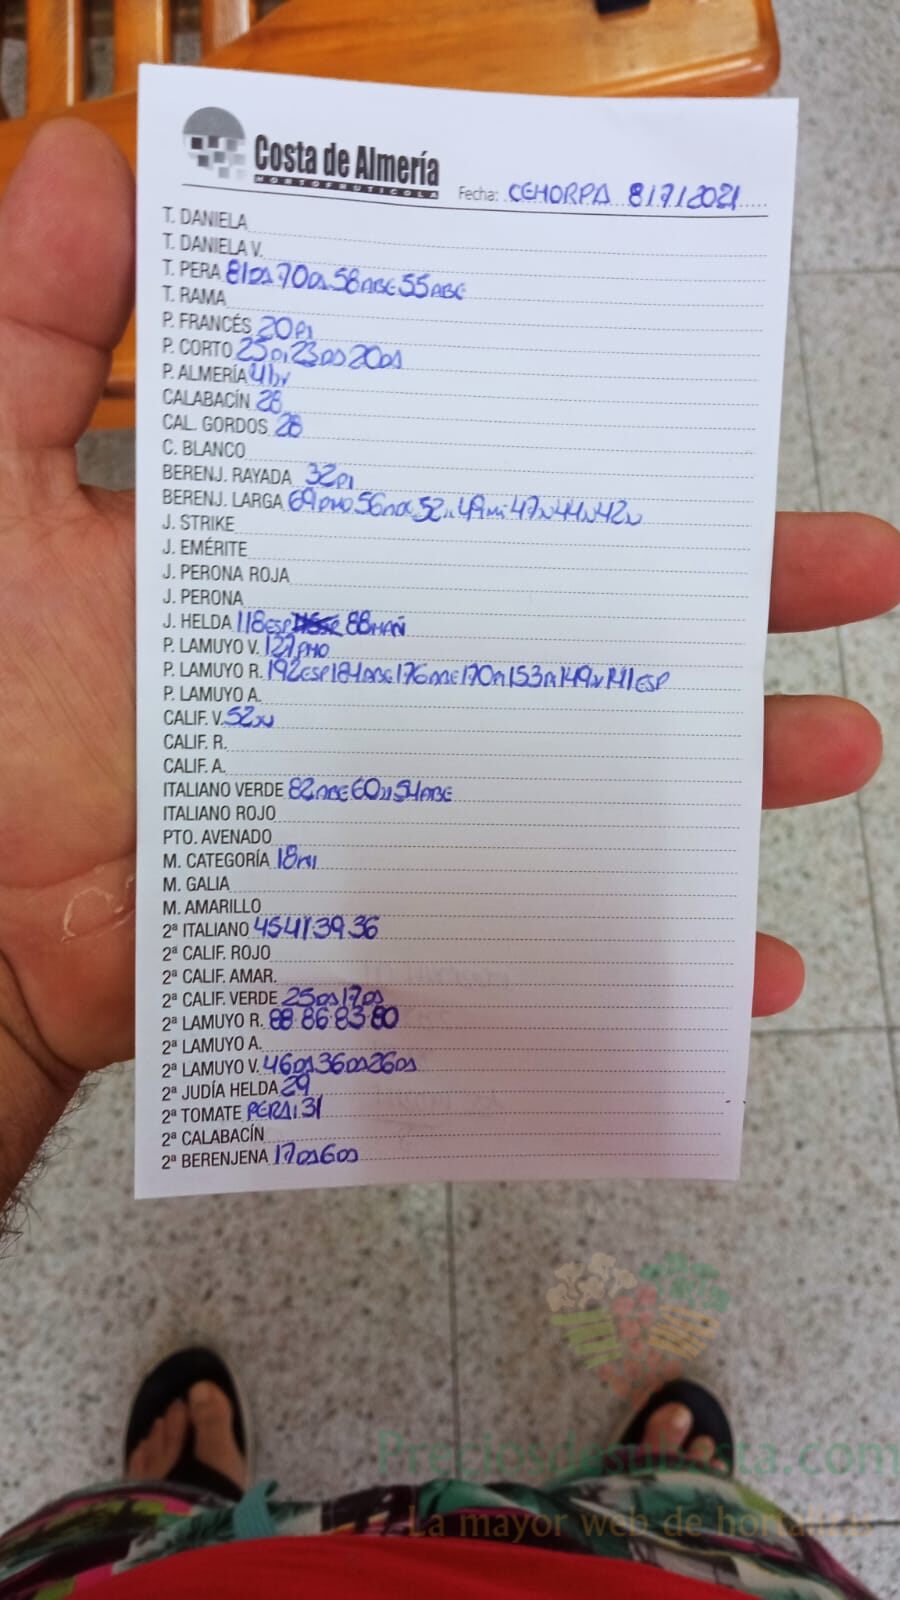 Costa de Almería
HORTOFRUTICOLA
Fecha: CEHORPA 8/7/2021
T. DANIELA
T. DANIELA V.
T. PERA 81DS 70DS 58ABE 55ABE
T. RAMA
P. FRANCÉS 20PI
P. CORTO 25PI 23DS 20DS
P. ALMERÍA
CALABACÍN 28
CAL. GORDOS 28
C. BLANCO
BERENJ. RAYADA 32PI
BERENJ. LARGA 69PMO 56 52 49 47N 44N 42N
J. STRIKE
J. EMÉRITE
J. PERONA ROJA
J. PERONA
J. HELDA 118ESP 88MAÑ
P. LAMUYO V. 127PMO
P. LAMUYO R. 192ESP 184ABE 176ABE 170PI 153PI 149N 141ESP
P. LAMUYO A.
CALIF. V. 52N
CALIF. R.
CALIF. A.
ITALIANO VERDE 82ABE 60 54ABE
ITALIANO ROJO
PTO. AVENADO
M. CATEGORÍA 18
M. GALIA
M. AMARILLO
2ª ITALIANO 45 41·39·36
2ª CALIF. ROJO
2ª CALIF. AMAR.
2ª CALIF. VERDE 25DS 17DS
2ª LAMUYO R. 88·86·83·80
2ª LAMUYO A.
2ª LAMUYO V. 46DS 36DS 26DS
2ª JUDÍA HELDA 29
2ª TOMATE PERA 31
2ª CALABACÍN
2ª BERENJENA 17DS 6DS
Preciosdesubasta.com
La mayor web de hortalizas